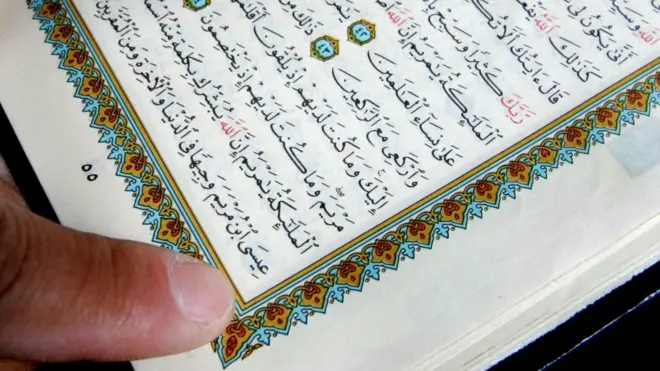 أَنَّىٰ يَكُونُ لِي
كَذَٰلِكَ ٱللَّهُ يَفْعَلُ
قَالَ ءَايَتُكَ أَلَّا
رَّبَّكَ كَثِيرًا وَسَبِّحْ
ٱلْمَلَٰٓئِكَةُ يَٰمَرْيَمُ إِنَّ ٱللَّهَ
عَلَىٰ نِسَآءِ ٱلْعَٰلَمِينَ ٤٢
وَٱرْكَعِي مَعَ ٱلرَّٰكِعِينَ ٤٣ ذَٰلِكَ مِنْ
إِلَيْكَ وَمَا كُنتَ لَدَيْهِمْ إِذْ يُلْقُونَ
مَرْيَمَ وَمَا كُنتَ لَدَيْهِمْ إِذْ يَخْتَصِمُونَ
ٱلْمَلَٰٓئِكَةُ يَٰمَرْيَمُ إِنَّ ٱللَّهَ يُبَشِّرُكِ بِكَلِمَةٍ مِّنْهُ
عِيسَى ٱبْنُ مَرْيَمَ وَجِيهًا فِي ٱلدُّنْيَا وَٱلْءَاخِرَةِ وَمِنَ ٱلْمُقَرَّبِينَ
٥٥